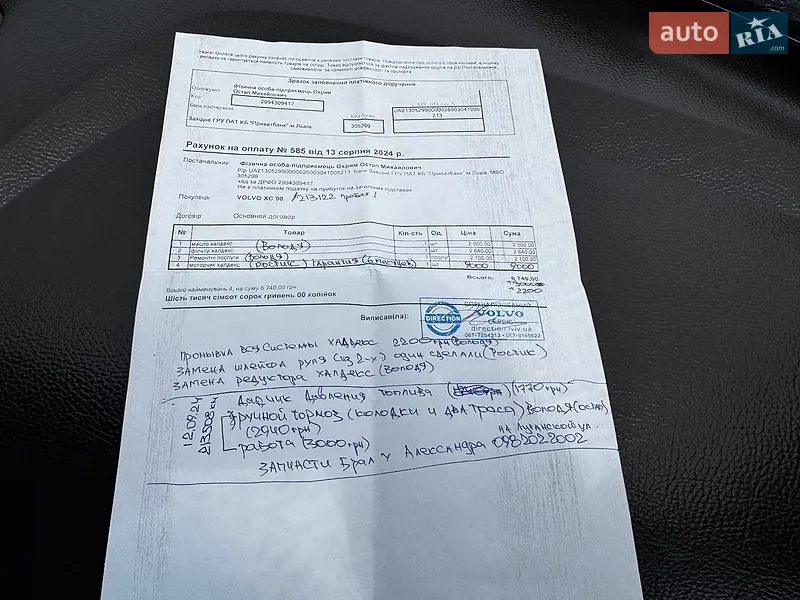 auto RIA.com
Увага! Оплата цього рахунку означає погодження з умовами поставки товарів. Повідомлення про оплату є обов'язковим, в іншому
випадку не гарантується наявність товарів на складі. Товар відпускається за фактом надходження коштів на р/р Постачальника,
самовивозом, за наявності довіреності та паспорта.
Зразок заповнення платіжного доручення
Одержувач Фізична особа-підприємець Охрим
Остап Михайлович
Код 2994309417
Банк одержувача Код банку
Західне ГРУ ПАТ КБ "Приватбанк" м.Львів 305299
UA213052990000026003041005
213
Рахунок на оплату № 585 від 13 серпня 2024 р.
Постачальник: Фізична особа-підприємець Охрим Остап Михайлович
Р/р UA213052990000026003041005213, Банк Західне ГРУ ПАТ КБ "Приватбанк" м.Львів, МФО
305299
код за ДРФО 2994309417,
Не є платником податку на прибуток на загальних підставах
Покупець: VOLVO XC 90 /213.122 пробег/
Договір: Основной договор
№ Товар Кіл-сть Од. Ціна Сума
1 масло халдекс (Володя) 1 шт 2 000,00 2 000,00
2 фільтр халдекс 1 шт 2 640,00 2 640,00
3 Ремонтні послуги (Володя) 1 послуг 2 100,00 2 100,00
4 моторчик халдекс (Ростик) гарантия (6 месяцев) 1 шт 9000 9000
Всього: 6 740,00
+9000
+2200
Всього найменувань 4, на суму 6 740,00 грн.
Шість тисяч сімсот сорок гривень 00 копійок
Виписав(ла):
DIRECTION
СПЕЦІАЛІЗОВАНИЙ
VOLVO
СЕРВІС
direction.lviv.ua
067-7254313 067-9165622
Промывка вся системы халдекс 2200 грн (Володя)
Замена шлейфа руля (из 2-х) один сделали (Ростик)
Замена редуктора халдекс (Володя)
12.09.24
213.508 км
Датчик давления топлива (1770 грн)
Ручной тормоз (колодки и два троса) Володя (Остап)
(2940 грн)
работа (3000 грн)
на Луганской ул.
Запчасти брал у Александра 0982022002